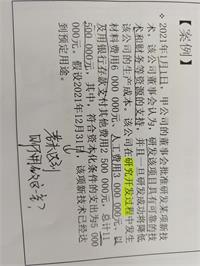 【案例】
2021年1月1日，甲公司的董事会批准研发某项新技
术，该公司董事会认为，研发该项目具有可靠的技
术和财务等资源的支持，并且一旦研发成功将降低
该公司的生产成本。该公司在研究开发过程中发生
材料费用6 000 000元、人工费用3 000 000元以
及用银行存款支付其他费用2 500 000元，总计11
500 000元，其中，符合资本化条件的支出为5 000
000元。假设2021年12月31日，该项新技术已经达
到预定用途。